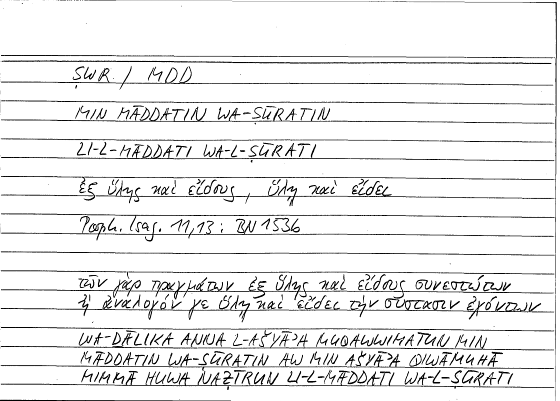 ṢWR / MDD
MIN MĀDDATIN WA-ṢŪRATIN
LI-L-MĀDDATI WA-L-ṢŪRATI
ἐξ ὕλης καὶ εἴδους, ὕλῃ καὶ εἴδει
Porph. Isag. 11,13 : BN 153b
τῶν γὰρ πραγμάτων ἐξ ὕλης καὶ εἴδους συνεστώτων
ἢ ἀνάλογόν γε ὕλῃ καὶ εἴδει τὴν σύστασιν ἐχόντων
WA-ḎĀLIKA ANNA L-AŠYĀʾA MUQAWWIMATUN MIN
MĀDDATIN WA-ṢŪRATIN AW MIN AŠYĀʾA QIWĀMUHĀ
MIMMĀ HUWA NAẒĪRUN LI-L-MĀDDATI WA-L-ṢŪRATI